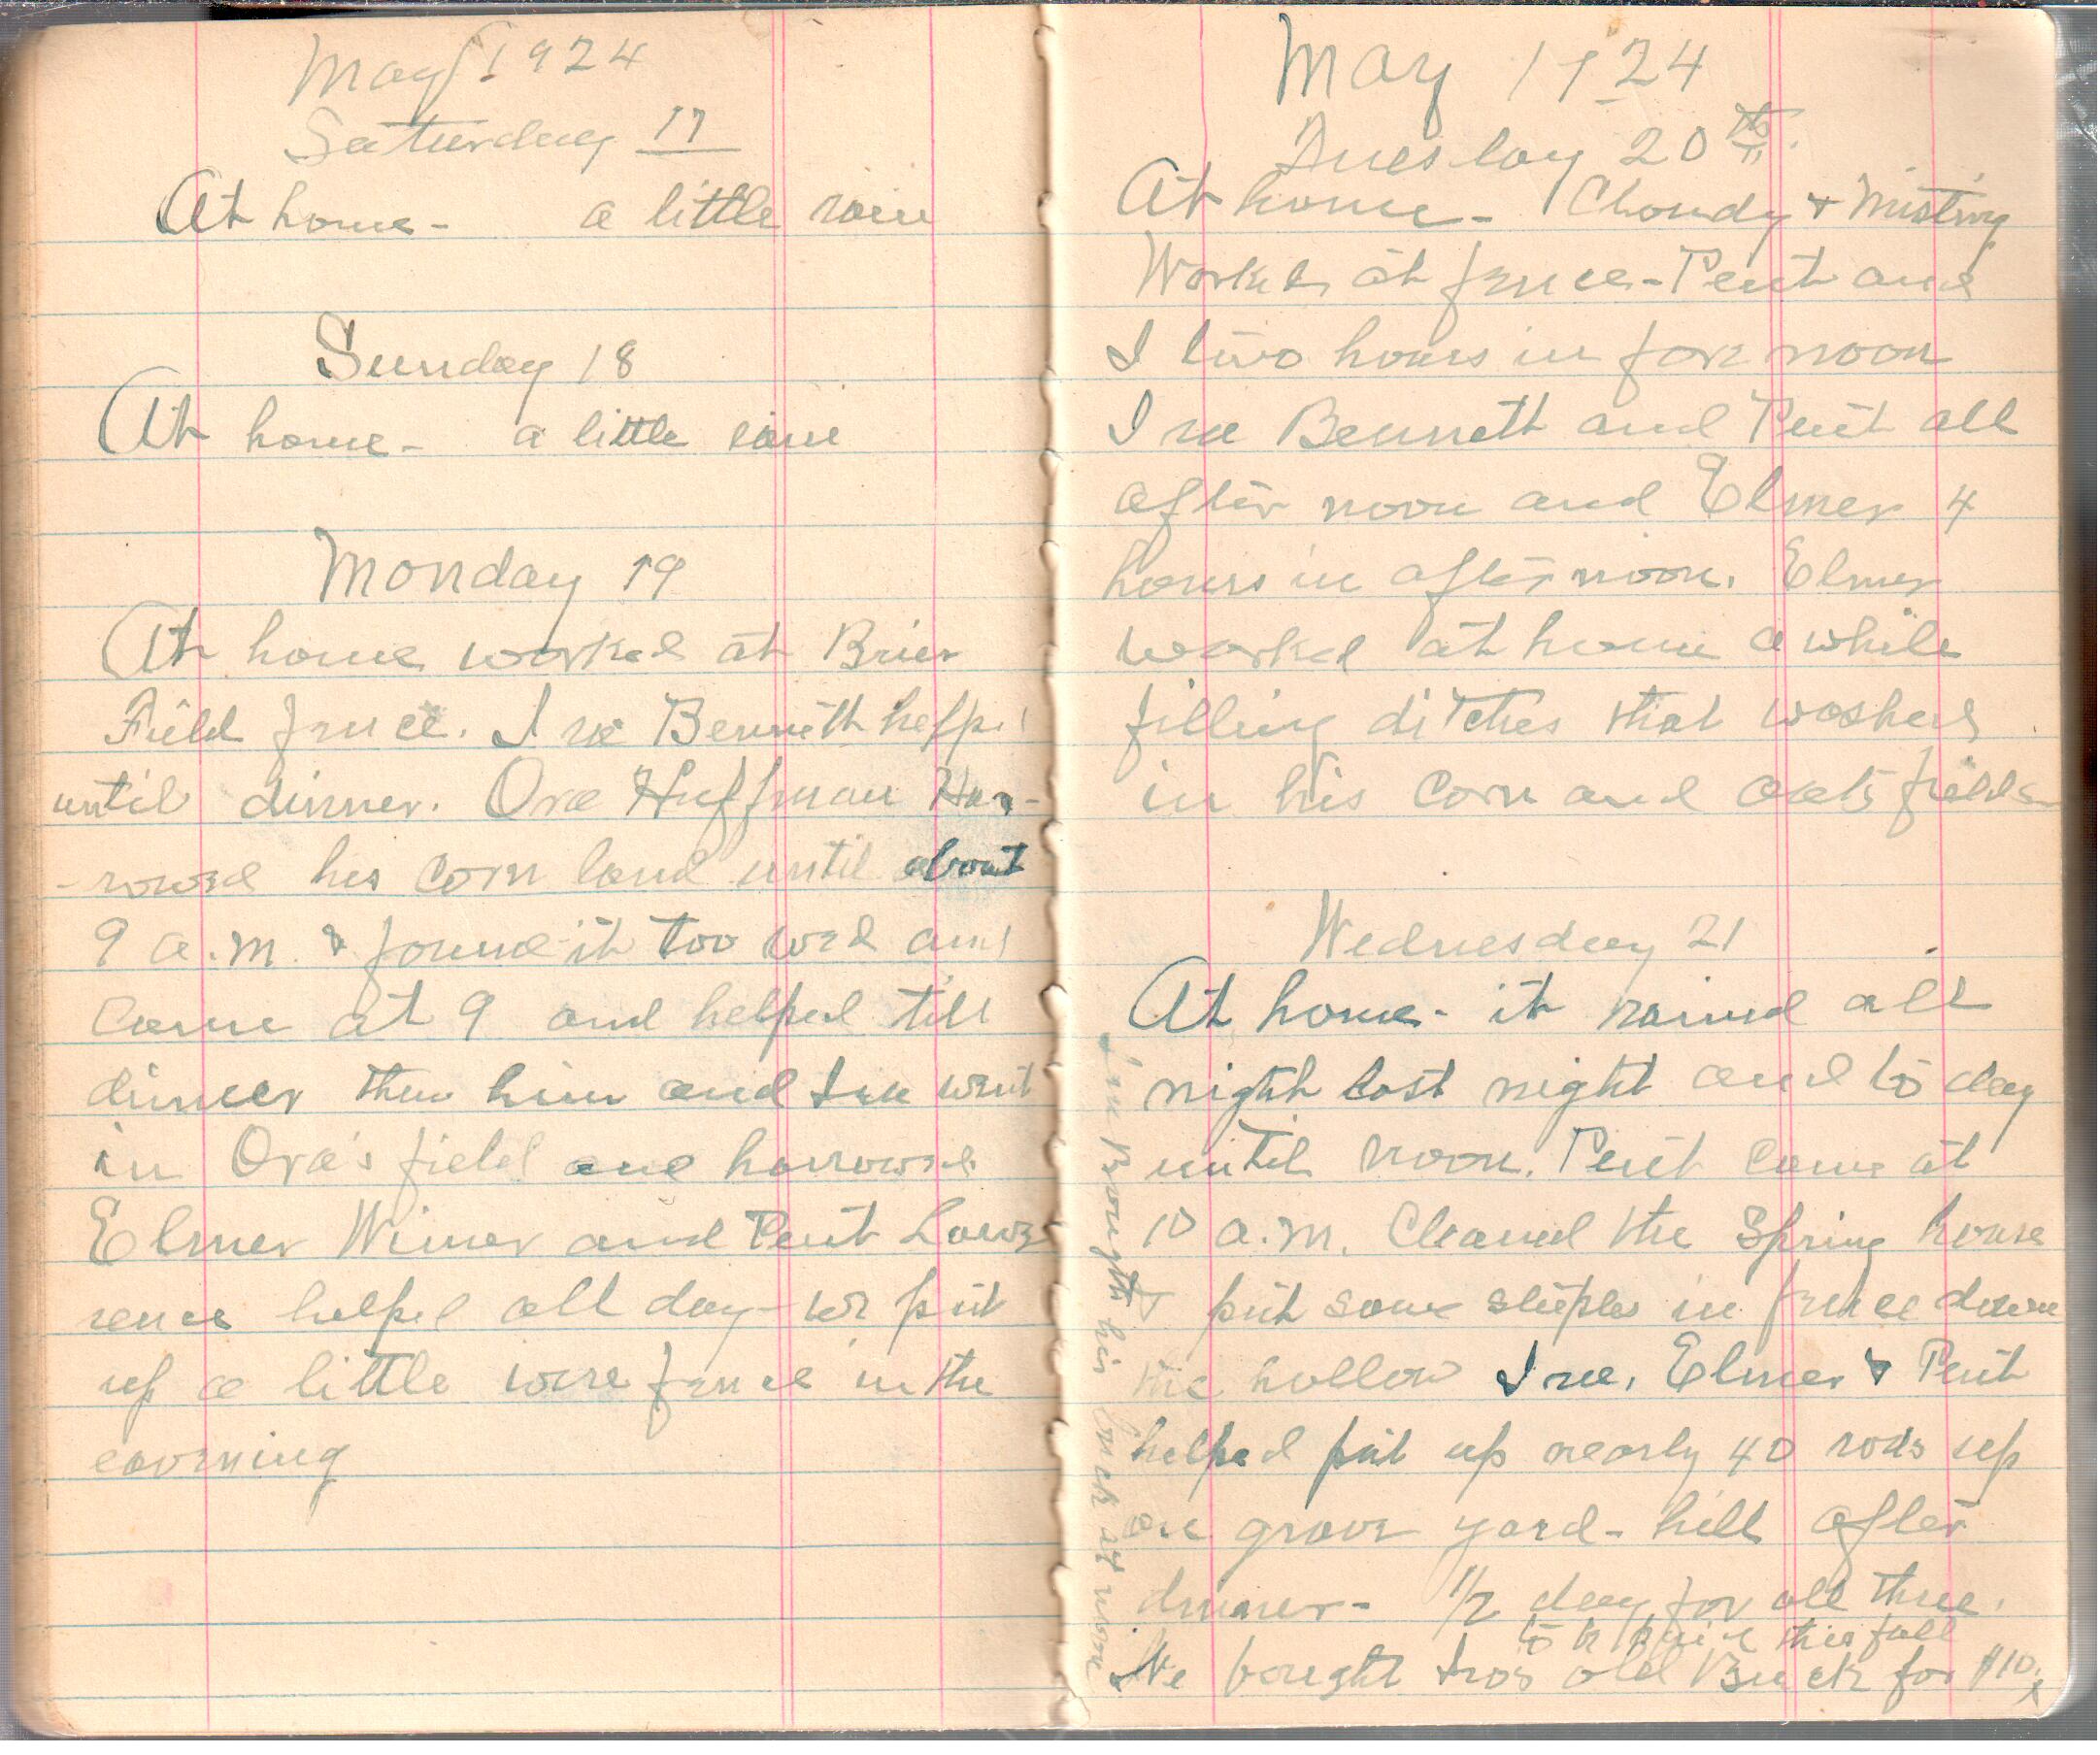 May 1924
Saturday 17
At home - a little rain
Sunday 18
At home - a little rain
Monday 19
At home worked at Brier
Field fence. Ira Bennett helped
until dinner. Ora Huffman Har-
-rowed his corn land until about
9 a.m. & found it too wet and
came at 9 and helped till
dinner then him and Ira went
in Ora's field and harrowed
Elmer Wimer and Pent Law-
rence helped all day - we put
up a little wire fence in the
eavening
May 1924
Tuesday 20th.
At home - Cloudy & Misting
Worked at fence - Pent and
I two hours in fore noon
Ira Bennett and Pent all
after noon and Elmer 4
hours in afternoon. Elmer
worked at home a while
filling ditches that washed
in his corn and oats fields
Wednesday 21
At home - it rained all
night last night and to day
until noon. Pent came at
10 a.m. Cleaned the Spring house
& put some steeples in fence down
the hollow Ira, Elmer & Pent
helped put up nearly 40 rods up
on grave yard - hill after
dinner - 1/2 day for all three.
to be paid this fall
We bought Ira's old Buck for $10.
Ira Brought his buck at noon